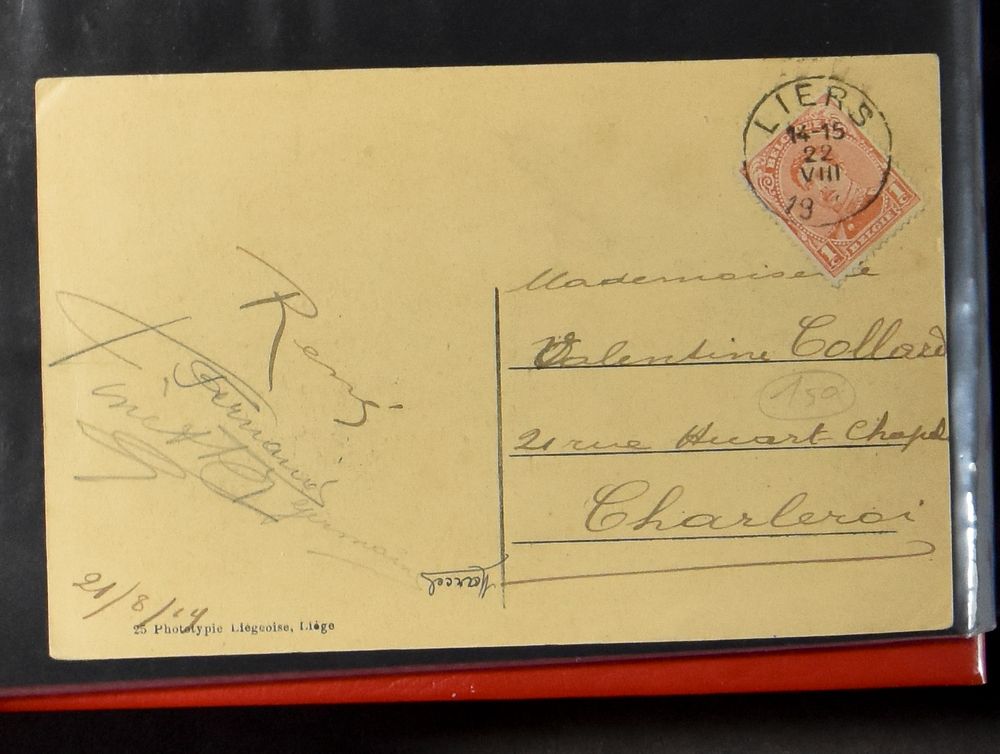 LIERS
14-15
22
VIII
19
BELGIQUE
BELGIË
1 C
1 C
Mademoiselle
Valentine Collard
150
21 rue Huart Chapel
Charleroi
René
Fernand
Germain
Marcel
21/8/19
25 Phototypie Liégeoise, Liége